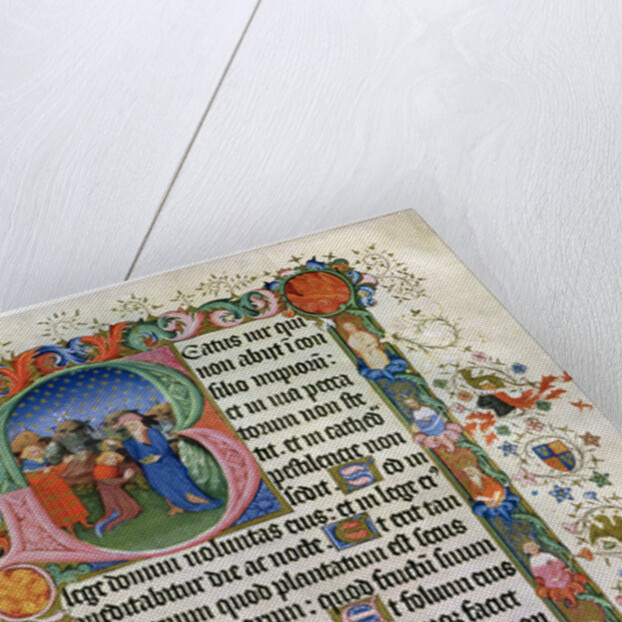 Eatus uir qui
non abijt ī con
silio impiorū:
et in uia pecca
torum non ste
tit. et in cathedͣ
pestilencie non
sedit Sed in
lege domini uoluntas eius: et in lege eiꝰ
meditabitur die ac nocte: Et erit tan
quod plantatum est secus
quod fructū suum
Et folium eius
faciet